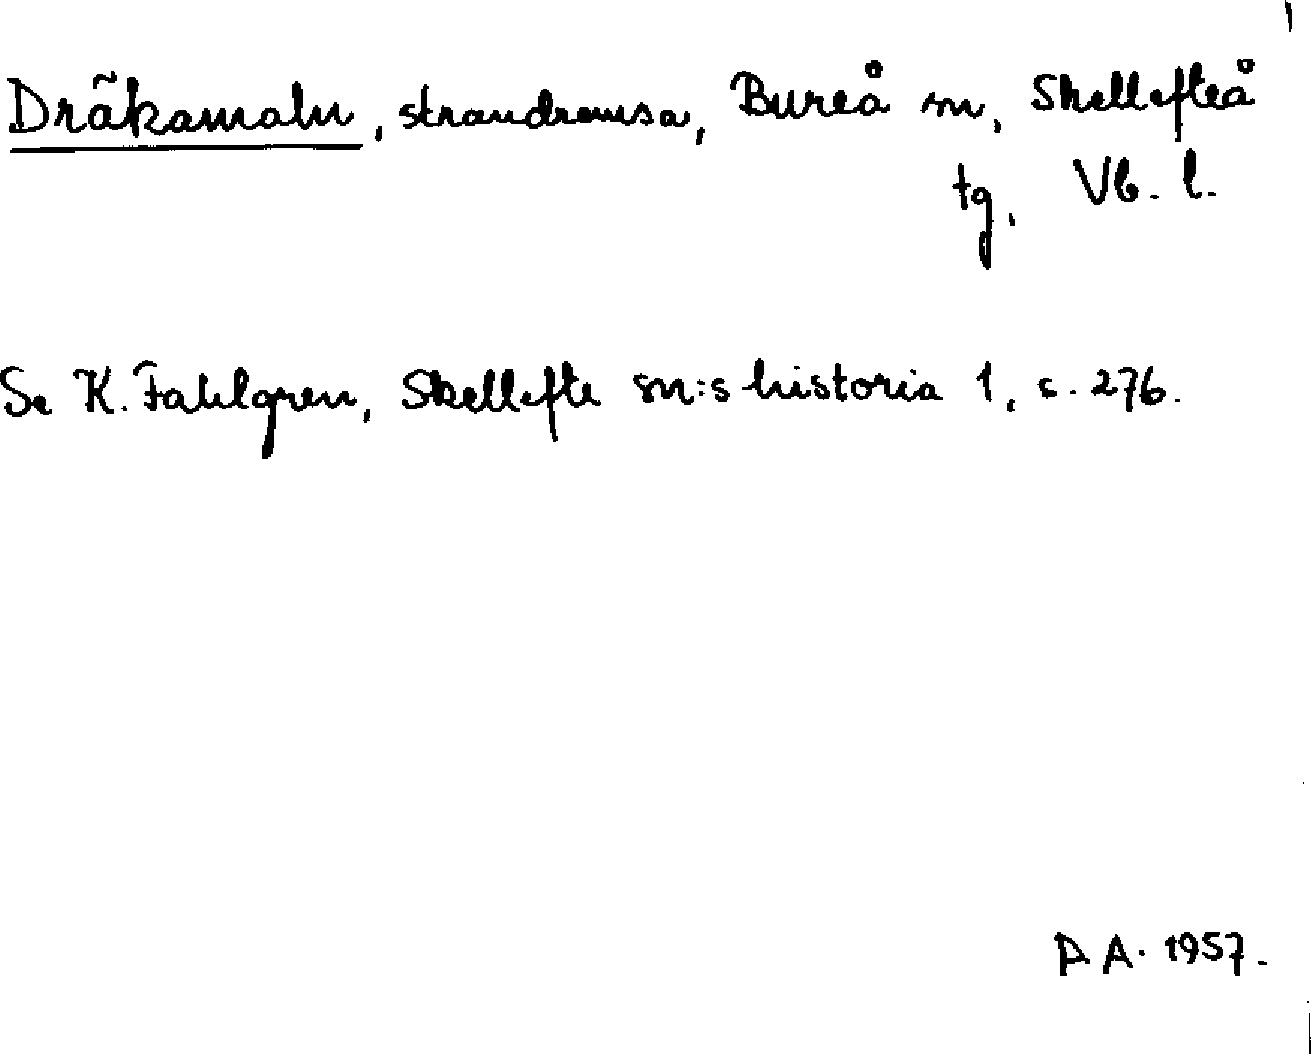 Dråkamaln, strandremsa, Bureå sn, Skellefteå
tg, Vb. l.
Se K. Fahlgren, Skellefte sn:s historia 1, s. 276.
A. 1957.